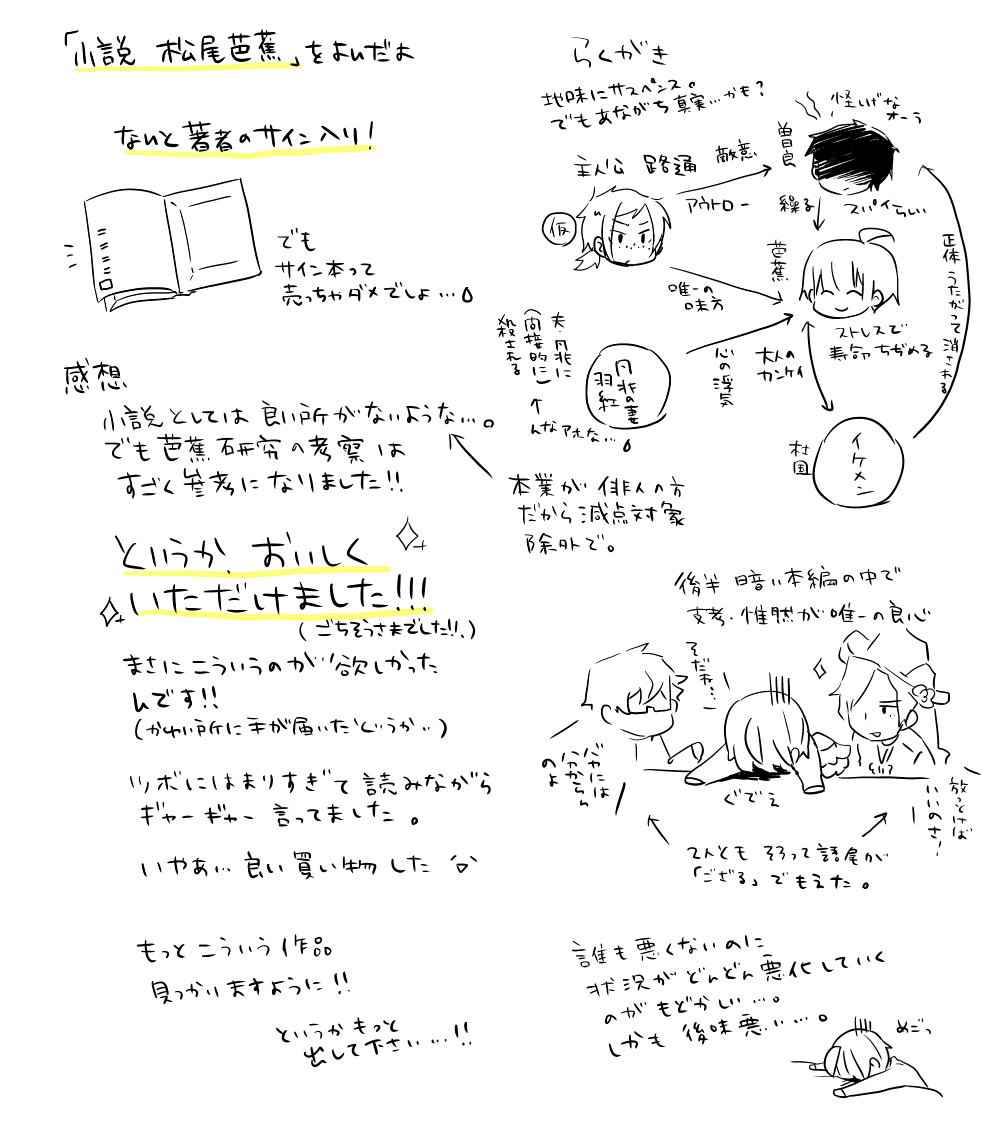 「小説 松尾芭蕉」をよんだよ
なんと著者のサイン入り!
でも
サイン本って
売っちゃダメでしょ…
感想
小説としては良い所がないような…。
でも芭蕉研究の考察は
すごく参考になりました!!
というか、おいしく
いただけました!!!
(ごちそうさまでした!!)
まさにこういうのが欲しかった
んです!!
(かゆい所に手が届いたというか…)
ツボにはまりすぎて読みながら
ギャーギャー言ってました。
いやぁ…良い買い物した
もっとこういう作品
見つかりますように!!
というかもっと
出して下さい…!!
らくがき
地味にサスペンス。
でもあながち真実…かも?
怪しげな
オーラ
曽良
主人公 路通
敵意
アウトロー
(仮)
操る
スパイらしい
芭蕉
唯一の
味方
ストレスで
寿命ちぢめる
正体うたがって消される
夫・凡兆に
(間接的に)
殺される
凡兆の妻
羽紅
んなアホな…
心の浮気
大人の
カンケイ
村国
イケメン
本業が俳人の方
だから減点対象
除外で。
後半暗い本編の中で
支考・惟然が唯一の良心
そだね…
バカには
分からん
のよ
ぐでえ
放っとけば
いいのさ!
2人ともそろって語尾が
「ござる」でもえた。
誰も悪くないのに
状況がどんどん悪化していく
のがもどかしい…。
しかも後味悪い…。
めごっ